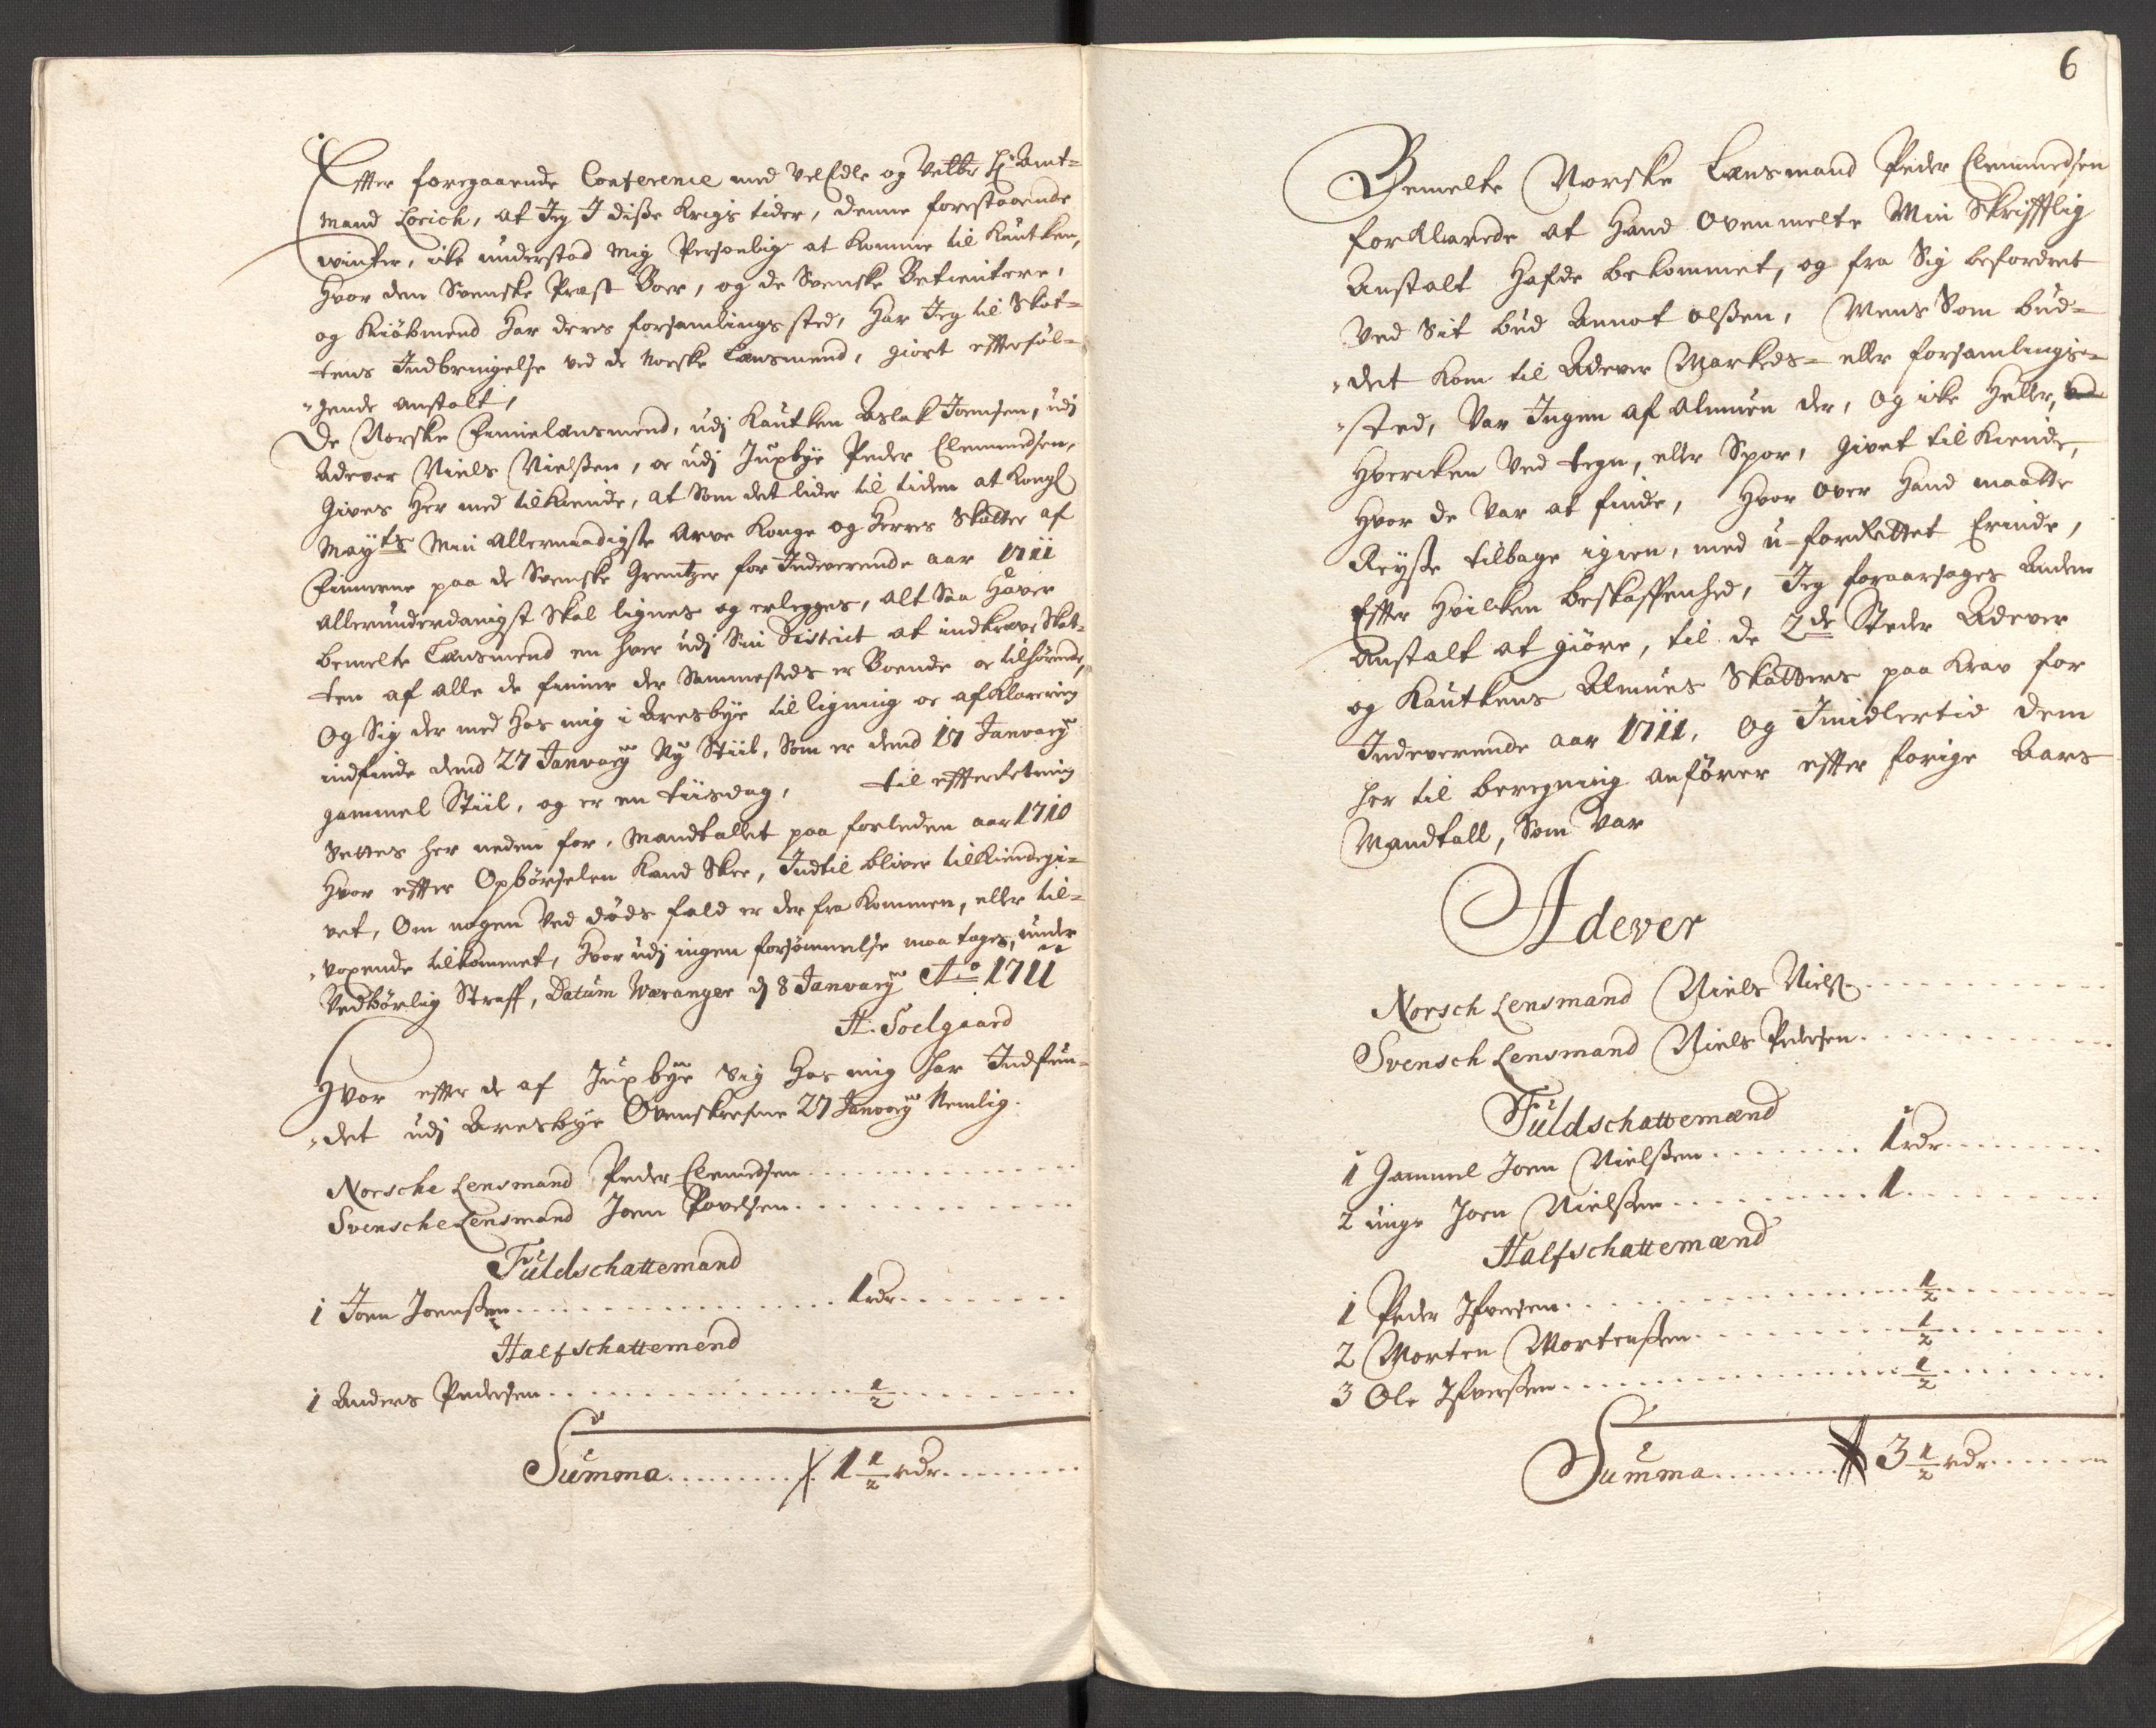 Effter foregaaende Conference med VelEdle og Velbr Hr Amt-
mand Lorich, at Jeg I disße Krigs tider, denne forestaaende
winter, icke understod mig Personlig at komme til Kautken,
hvor den Svenske Præst Boer, og de Svenske Betientere,
og Kiöbmend har deres forsamlings sted, har Jeg til Skat-
tens Indbringelse ved de Norske Lensmend, giort efterföl-
gende anstalt,
De Norske Finnelensmend, udj Kautken Aslak Joensen, udj
Adever Niels Nielsßen, oc udj Juxbye Peder Clemmedsen,
Gives her med tilkiende, at Som det lider til tiden at Kongl
Mayts Min Allernaadigste Arve Konge og Herres Skatter af
Finnerne paa de Svenske Grentzer for Indeverende aar 1711
allerunderdanigst Skal lignes og erlegges, alt Saa haver
bemelte Lensmend en hver udj Sin District at indkræve Skat-
ten af alle de finner der Sammesteds er Boende oc tilhörende,
Og Sig der med hos mig i Aresbye til ligning oc afklarering
indfinde dend 27 January Ny Stiil, Som er dend 17 January
gammel Stiil, og er en tiisdag, til effterretning
Settes her neden for, Mandtallet paa forleden aar 1710
hvor effter Opbörselen kand Skee, Indtil bliver tilkiendegi-
vet, Om nogen Ved döds fald er der fra kommen, eller til-
voxende tilkommet, hvor udj ingen forsömmelse maa tages, under
Vedbörlig Straff, Datum Waranger d 8 January Ao 1711
H. Soelgaard
Hvor effter de af Juxbye Sig hos mig har Indfun-
det udj Aresbye Ovenskrefne 27 January Nemlig.
Norsche Lensmand Peder Clemedsen
Svensche Lensmand Joen Povelsen
Fuldschattemand
1 Joen Joensßen 1 rdr
Halfschattemend
1 Anders Pedersen 1/2
Summa 1 1/2 rdr
6
Bemelte Norske Lensmand Peder Clemmedsen
forklarede at hand ovenmelte Min Skrifftlig
Anstalt hafde bekommet, og fra Sig befordret
Ved Sit bud Annot olsßen, Mens Som bud-
det kom til Adever Markeds- eller forsamlings-
sted, Var Ingen af almuen der, og icke heller,
hvercken Ved tegn, eller Spor, givet tilkiende,
hvor de Var at finde, hvor over hand maatte
Reysße tilbage igien, med u-forrettet Erinde,
Effter hvilcken beskaffenhed, Jeg foraarsages Anden
Anstalt at giöre, til de 2de Steder Adever
og Kautkens Almues Skatters paa krav for
Indeverende aar 1711, og Imidlertid dem
her til beregning anförer effter forige Aars
Mandtall, Som Var
Adever
Norsch Lensmand Niels Niels
Svensch Lensmand Niels Pedersen
Fuldschattemænd
1 Gammel Joen Nielsßen 1 rdr
2 unge Joen Nielsßen 1
Halfschattemænd
1 Peder Ifversen 1/2
2 Morten Mortensßen 1/2
3 Ole Ifversßen 1/2
Summa 3 1/2 rdr